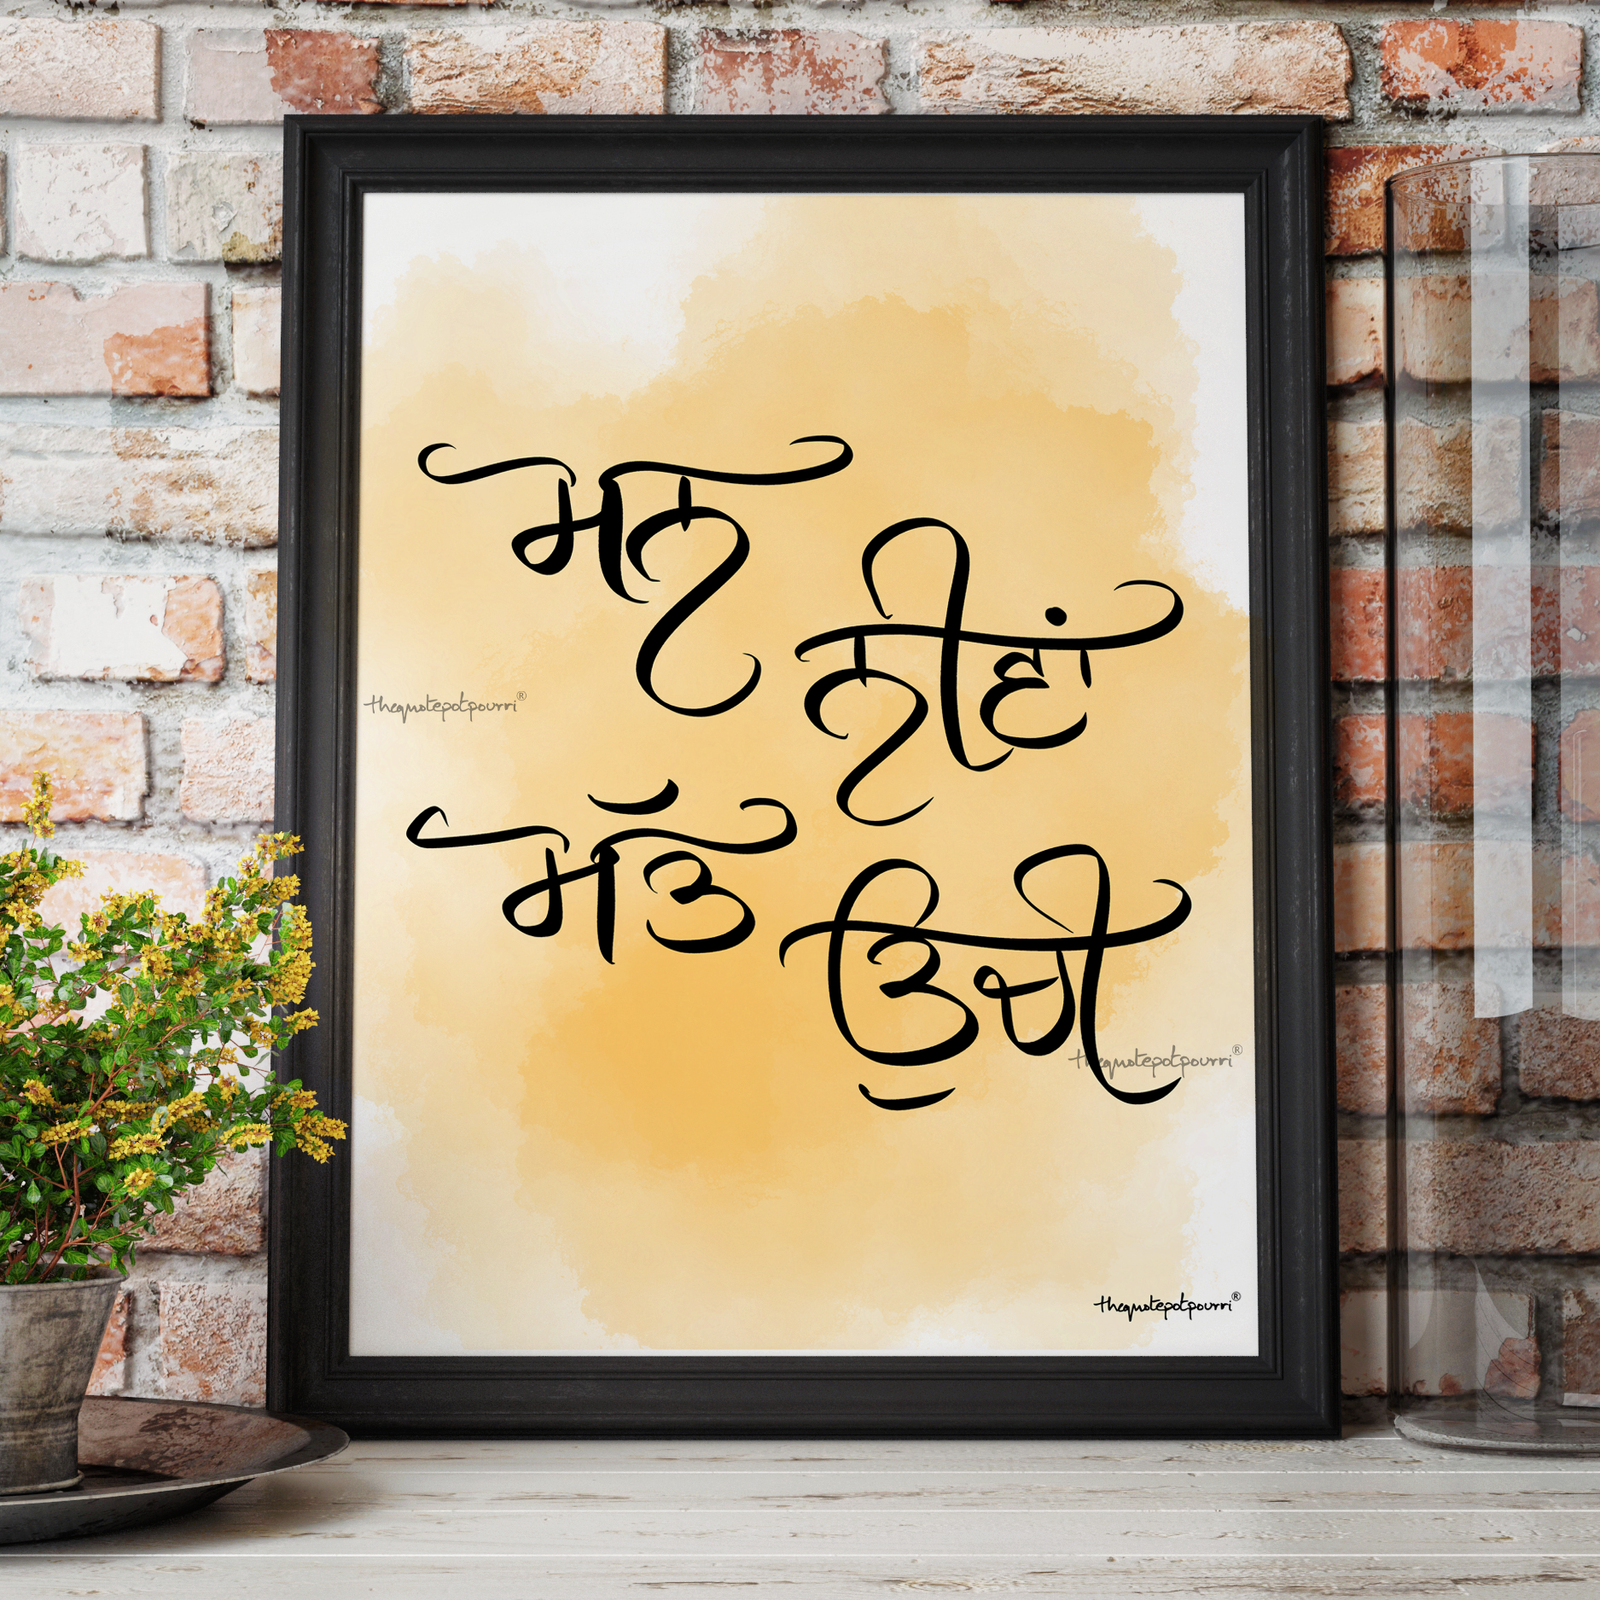 ਮਨ
ਨੀਵਾਂ
thequotepotpourri®
ਮੱਤ
ਉਚੀ
thequotepotpourri®
thequotepotpourri®